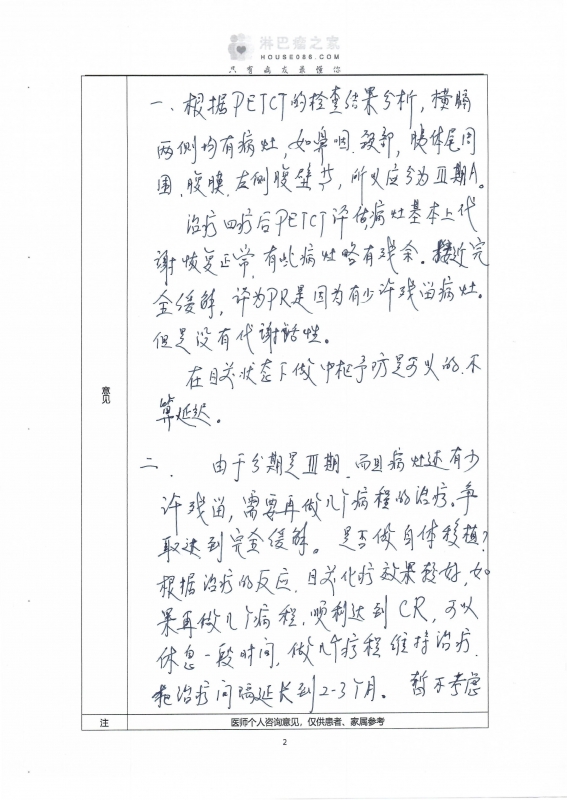 淋巴瘤之家
HOUSE086.COM
只有病友最懂你
一、根据PETCT的检查结果分析，横膈
两侧均有病灶，如鼻咽、颈部，胰体尾周
围、腹膜、左侧腹壁等，所以应分为Ⅲ期A。
治疗四疗后PETCT评估，病灶基本上代
谢恢复正常，有些病灶略有残余。接近完
全缓解，评为PR是因为有少许残留病灶。
但是没有代谢活性。
在目前状态下做中枢予防是可以的，不
算延迟。
意见
二、由于分期是Ⅲ期，而且病灶还有少
许残留，需要再做几个疗程的治疗。争
取达到完全缓解。是否做自体移植？
根据治疗的反应，目前化疗效果较好，如
果再做几个疗程，顺利达到CR，可以
休息一段时间，做几个疗程维持治疗，
把治疗间隔延长到2-3个月。暂不考虑
注 医师个人咨询意见，仅供患者、家属参考
2